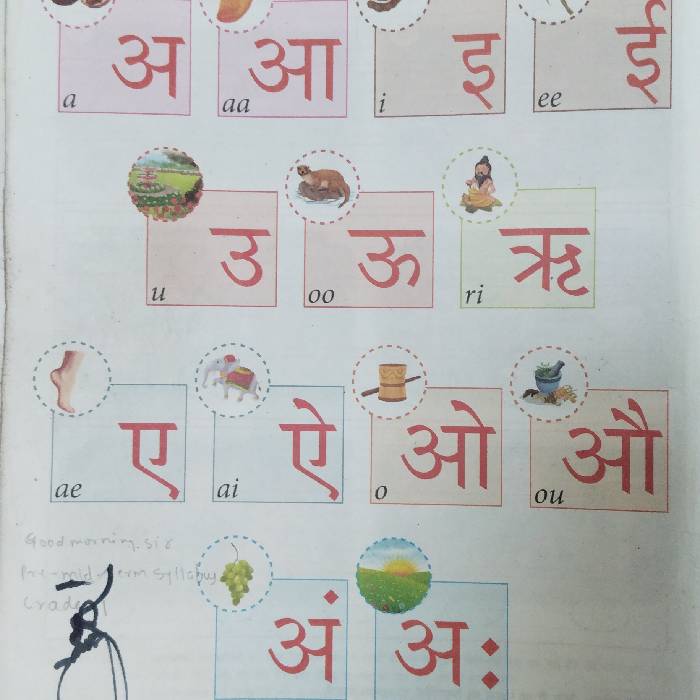 अ आ इ ई
a aa i ee
उ ऊ ऋ
u oo ri
ए ऐ ओ औ
ae ai o ou
Good morning. sir
Pre-mid-term syllabus
Grade-1
अं अः